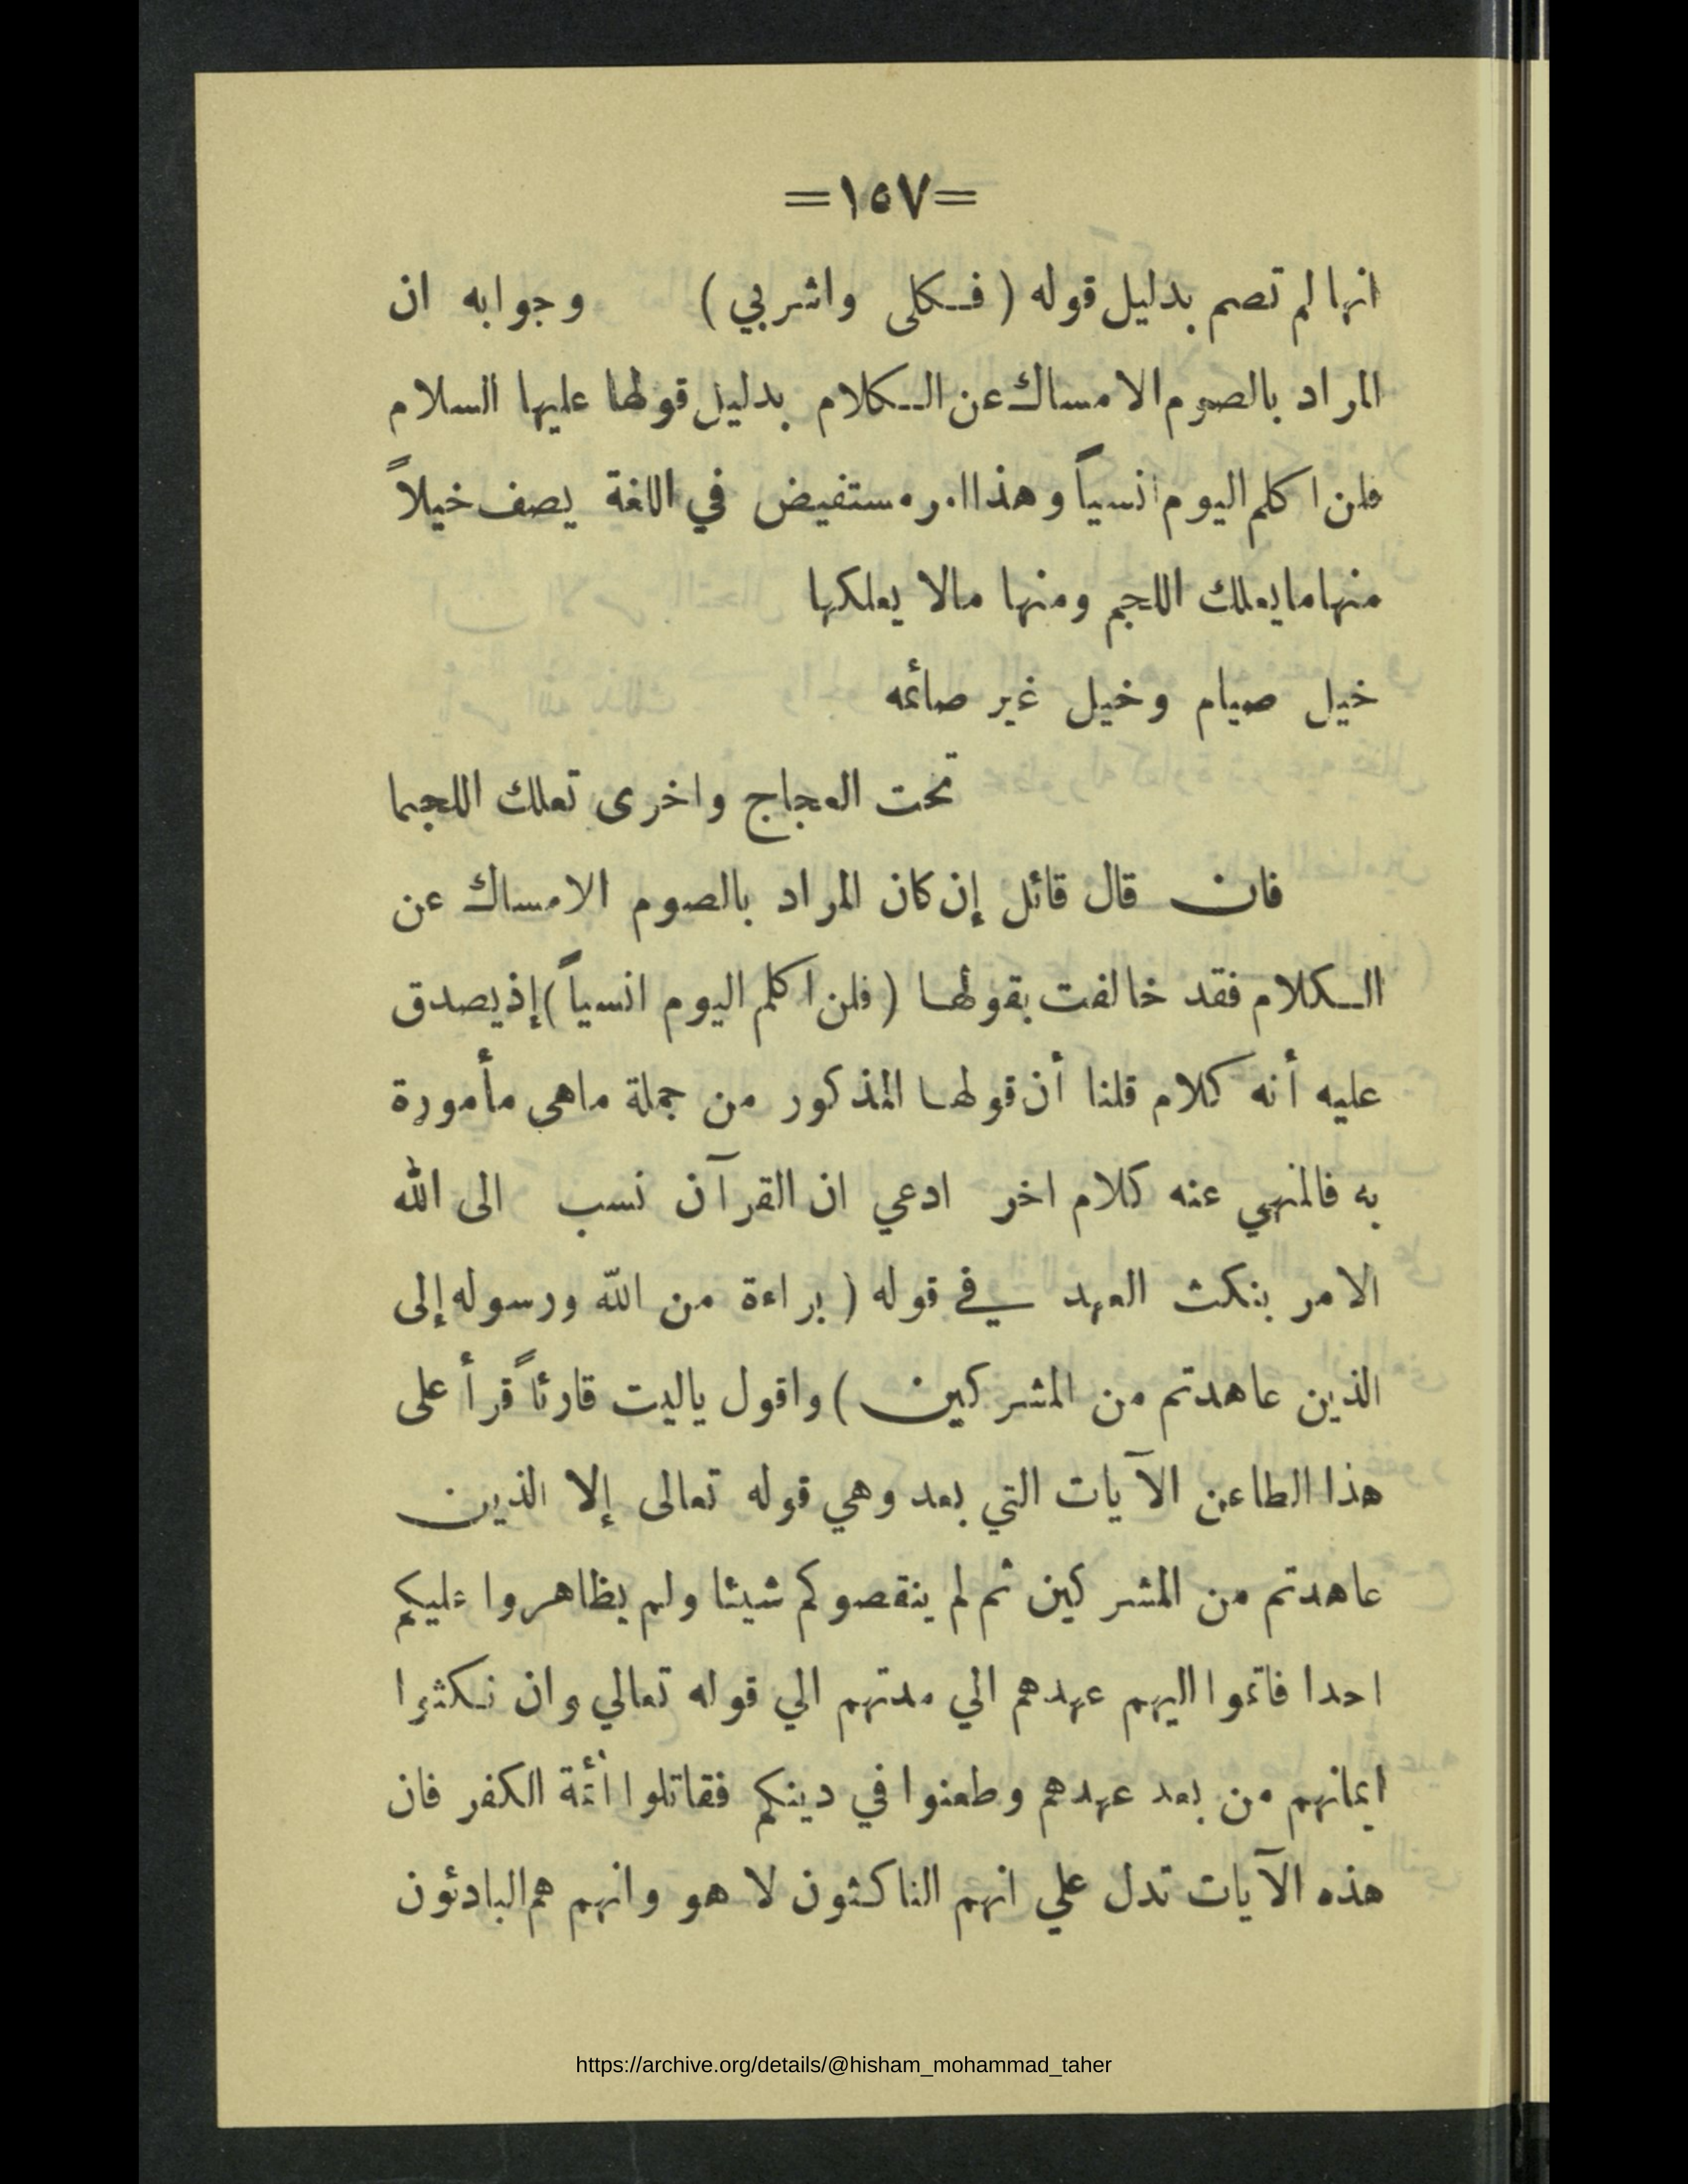 =١٥٧=
انها لم تصم بدليل قوله ( فكلى واشربي ) وجوابه ان
المراد بالصوم الامساك عن الكلام بدليل قولها عليها السلام
فلن اكلم اليوم انسياً وهذا امر مستفيض في اللغة يصف خيلاً
منها ما يعلك اللجم ومنها مالا يعلكها
خيل صيام وخيل غير صائمه
تحت العجاج واخرى تعلك اللجما
فان قال قائل إن كان المراد بالصوم الامساك عن
الكلام فقد خالفت بقولها ( فلن اكلم اليوم انسياً ) إذ يصدق
عليه أنه كلام قلنا أن قولها المذكور من جملة ماهى مأمورة
به فالمنهي عنه كلام اخر ادعي ان القرآن نسب الى الله
الامر بنكث العهد في قوله ( براءة من الله ورسوله إلى
الذين عاهدتم من المشركين ) واقول ياليت قارئاً قرأ على
هذا الطاعن الآيات التي بعد وهي قوله تعالى إلا الذين
عاهدتم من المشركين ثم لم ينقصوكم شيئا ولم يظاهروا عليكم
احدا فاتموا اليهم عهدهم الي مدتهم الي قوله تعالي وان نكثوا
ايمانهم من بعد عهدهم وطعنوا في دينكم فقاتلوا أئمة الكفر فان
هذه الآيات تدل علي انهم الناكثون لا هو وانهم هم البادئون
https://archive.org/details/@hisham_mohammad_taher